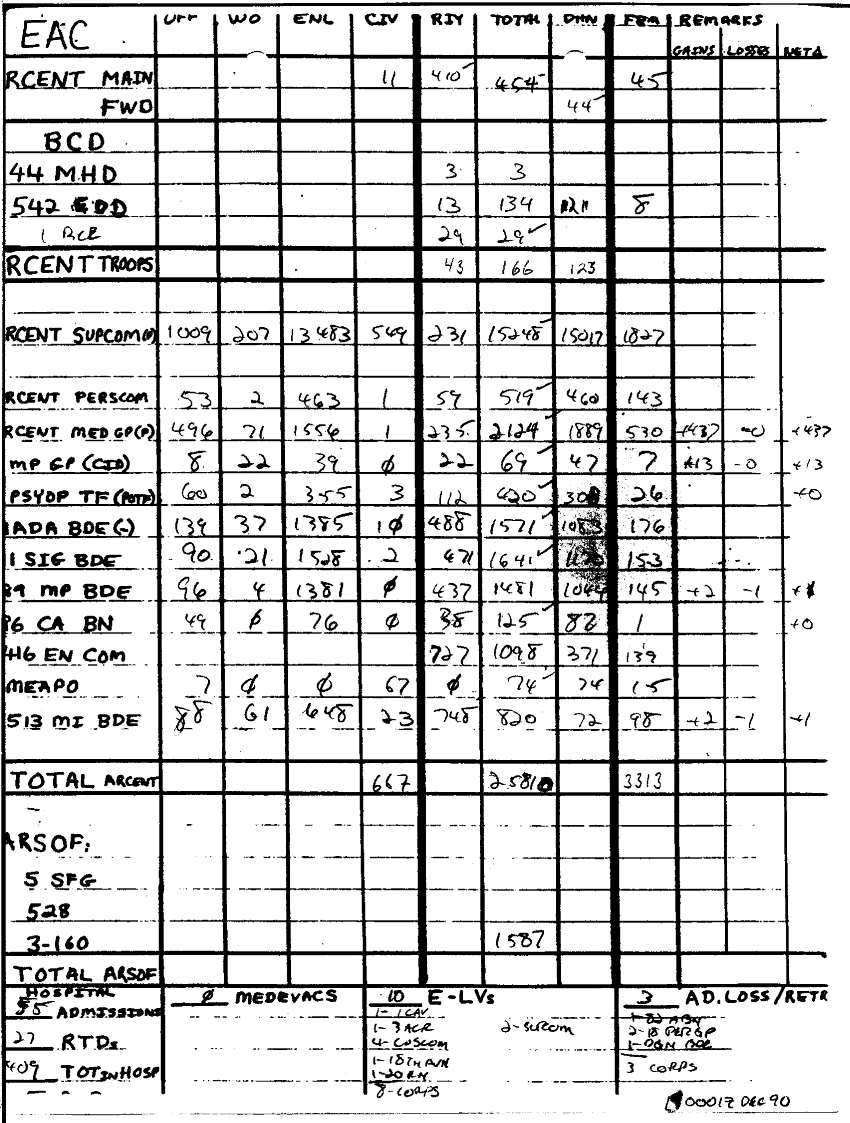 EAC OFF WO ENL CIV RIY TOTAL DHN FEM REMARKS
GAINS LOSSES NETΔ
RCENT MAIN 11 410 454 45
FWD 44
BCD
44 MHD 3 3
542 EOD 13 134 121 8
1 RCR 29 29
RCENT TROOPS 43 166 123
RCENT SUPCOM(P) 1009 207 13483 549 231 15248 15017 1827
RCENT PERSCOM 53 2 463 1 59 519 460 143
RCENT MED GP(P) 496 71 1556 1 235 2124 1889 530 +437 -0 +437
MP GP (CID) 8 22 39 Ø 22 69 47 7 +13 -0 +13
PSYOP TF (POTF) 60 2 355 3 112 420 308 26 +0
1ADA BDE (-) 139 37 1385 10 488 1571 1083 176
1 SIG BDE 90 21 1528 2 471 1641 1170 153
89 MP BDE 96 4 1381 Ø 437 1481 1044 145 +2 -1 +1
96 CA BN 49 Ø 76 Ø 38 125 87 1 +0
416 EN COM 727 1098 371 139
MEAPO 7 Ø Ø 67 Ø 74 74 15
513 MI BDE 88 61 648 23 748 820 72 98 +2 -1 +1
TOTAL ARCENT 667 25810 3313
ARSOF:
5 SFG
528
3-160 1587
TOTAL ARSOF
HOSPITAL
55 ADMISSIONS
27 RTDs
409 TOT IN HOSP
Ø MEDEVACS
10 E-LVs
1-1CAV
1-3 ACR
4-COSCOM
1-18TH AVN
1-20 EN
8-CORPS
2-SUPCOM
3 AD.LOSS/RETR
1-82 ABN
2-18 PER GP
3 CORPS
00017 DEC 90